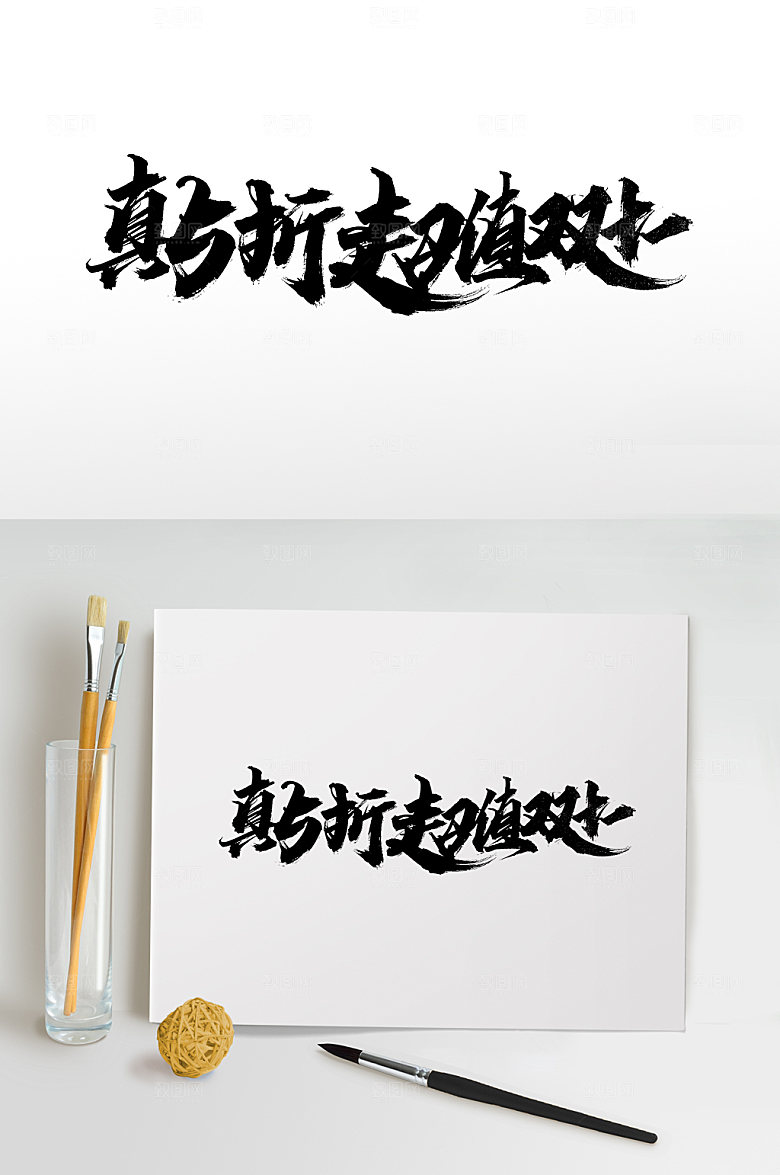 真5折超值双十一
真5折超值双十一